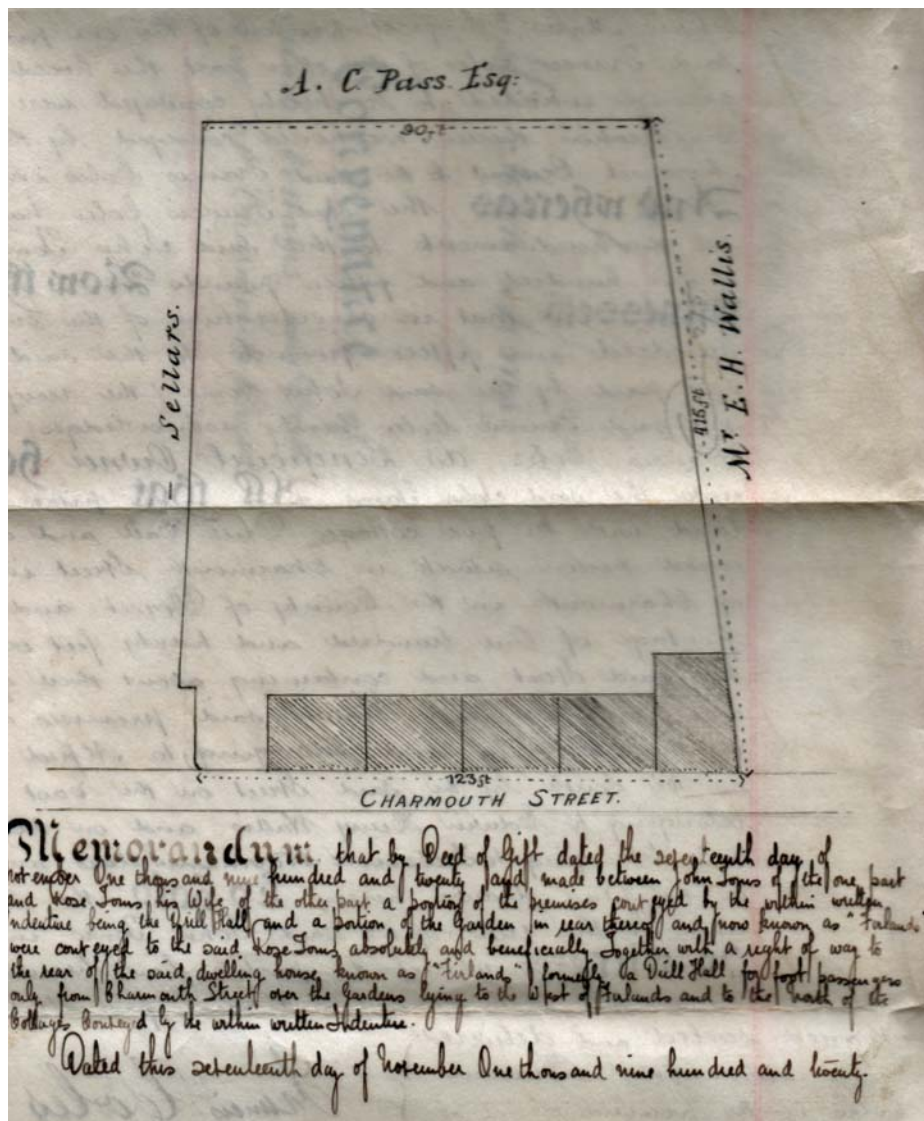 A. C. Pass. Esq:
90ft
Sellars.
Mr E. H. Wallis.
415ft
123ft
CHARMOUTH STREET.
Memorandum that by Deed of Gift dated the seventeenth day of
November One thousand nine hundred and twenty and made between John Toms of the one part
and Rose Toms his Wife of the other part a portion of the premises conveyed by the within written
Indenture being the Drill Hall and a portion of the Garden in rear thereof and now known as "Firlands"
were conveyed to the said Rose Toms absolutely and beneficially Together with a right of way to
the rear of the said dwelling house known as "Firlands" formerly a Drill Hall for foot passengers
only from Charmouth Street over the Gardens lying to the West of Firlands and to the North of the
Cottages Conveyed by the within written Indenture.
Dated this seventeenth day of November One thousand nine hundred and twenty.